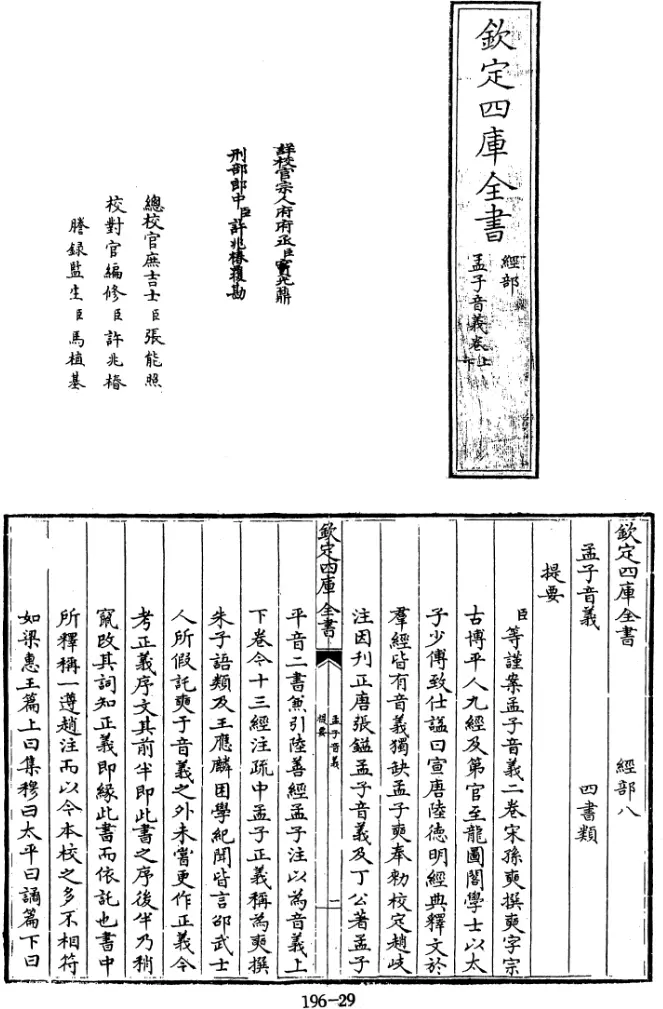 欽定四庫全書
經部
孟子音義卷上
下
詳校官宗人府府丞臣竇光鼐
刑部郎中臣許兆椿覆勘
總校官庶吉士臣張能照
校對官編修臣許兆椿
謄録監生臣馬植基
欽定四庫全書 經部八
孟子音義 四書類
提要
臣等謹案孟子音義二卷宋孫奭撰奭字宗
古博平人九經及第官至龍圖閣學士以太
子少傅致仕謚曰宣唐陸德明經典釋文於
羣經皆有音義獨缺孟子奭奉勅校定趙岐
注因刊正唐張鎰孟子音義及丁公著孟子
欽定四庫全書
孟子音義
提要
一
平音二書兼引陸善經孟子注以為音義上
下卷今十三經注疏中孟子正義稱為奭撰
朱子語類及王應麟困學紀聞皆言邵武士
人所假託奭于音義之外未嘗更作正義今
考正義序文其前半即此書之序後半乃稍
竄改其詞知正義即緣此書而依託也書中
所釋稱一遵趙注而以今本校之多不相符
如梁惠王篇上曰集穆曰太平曰譎篇下曰
196-29